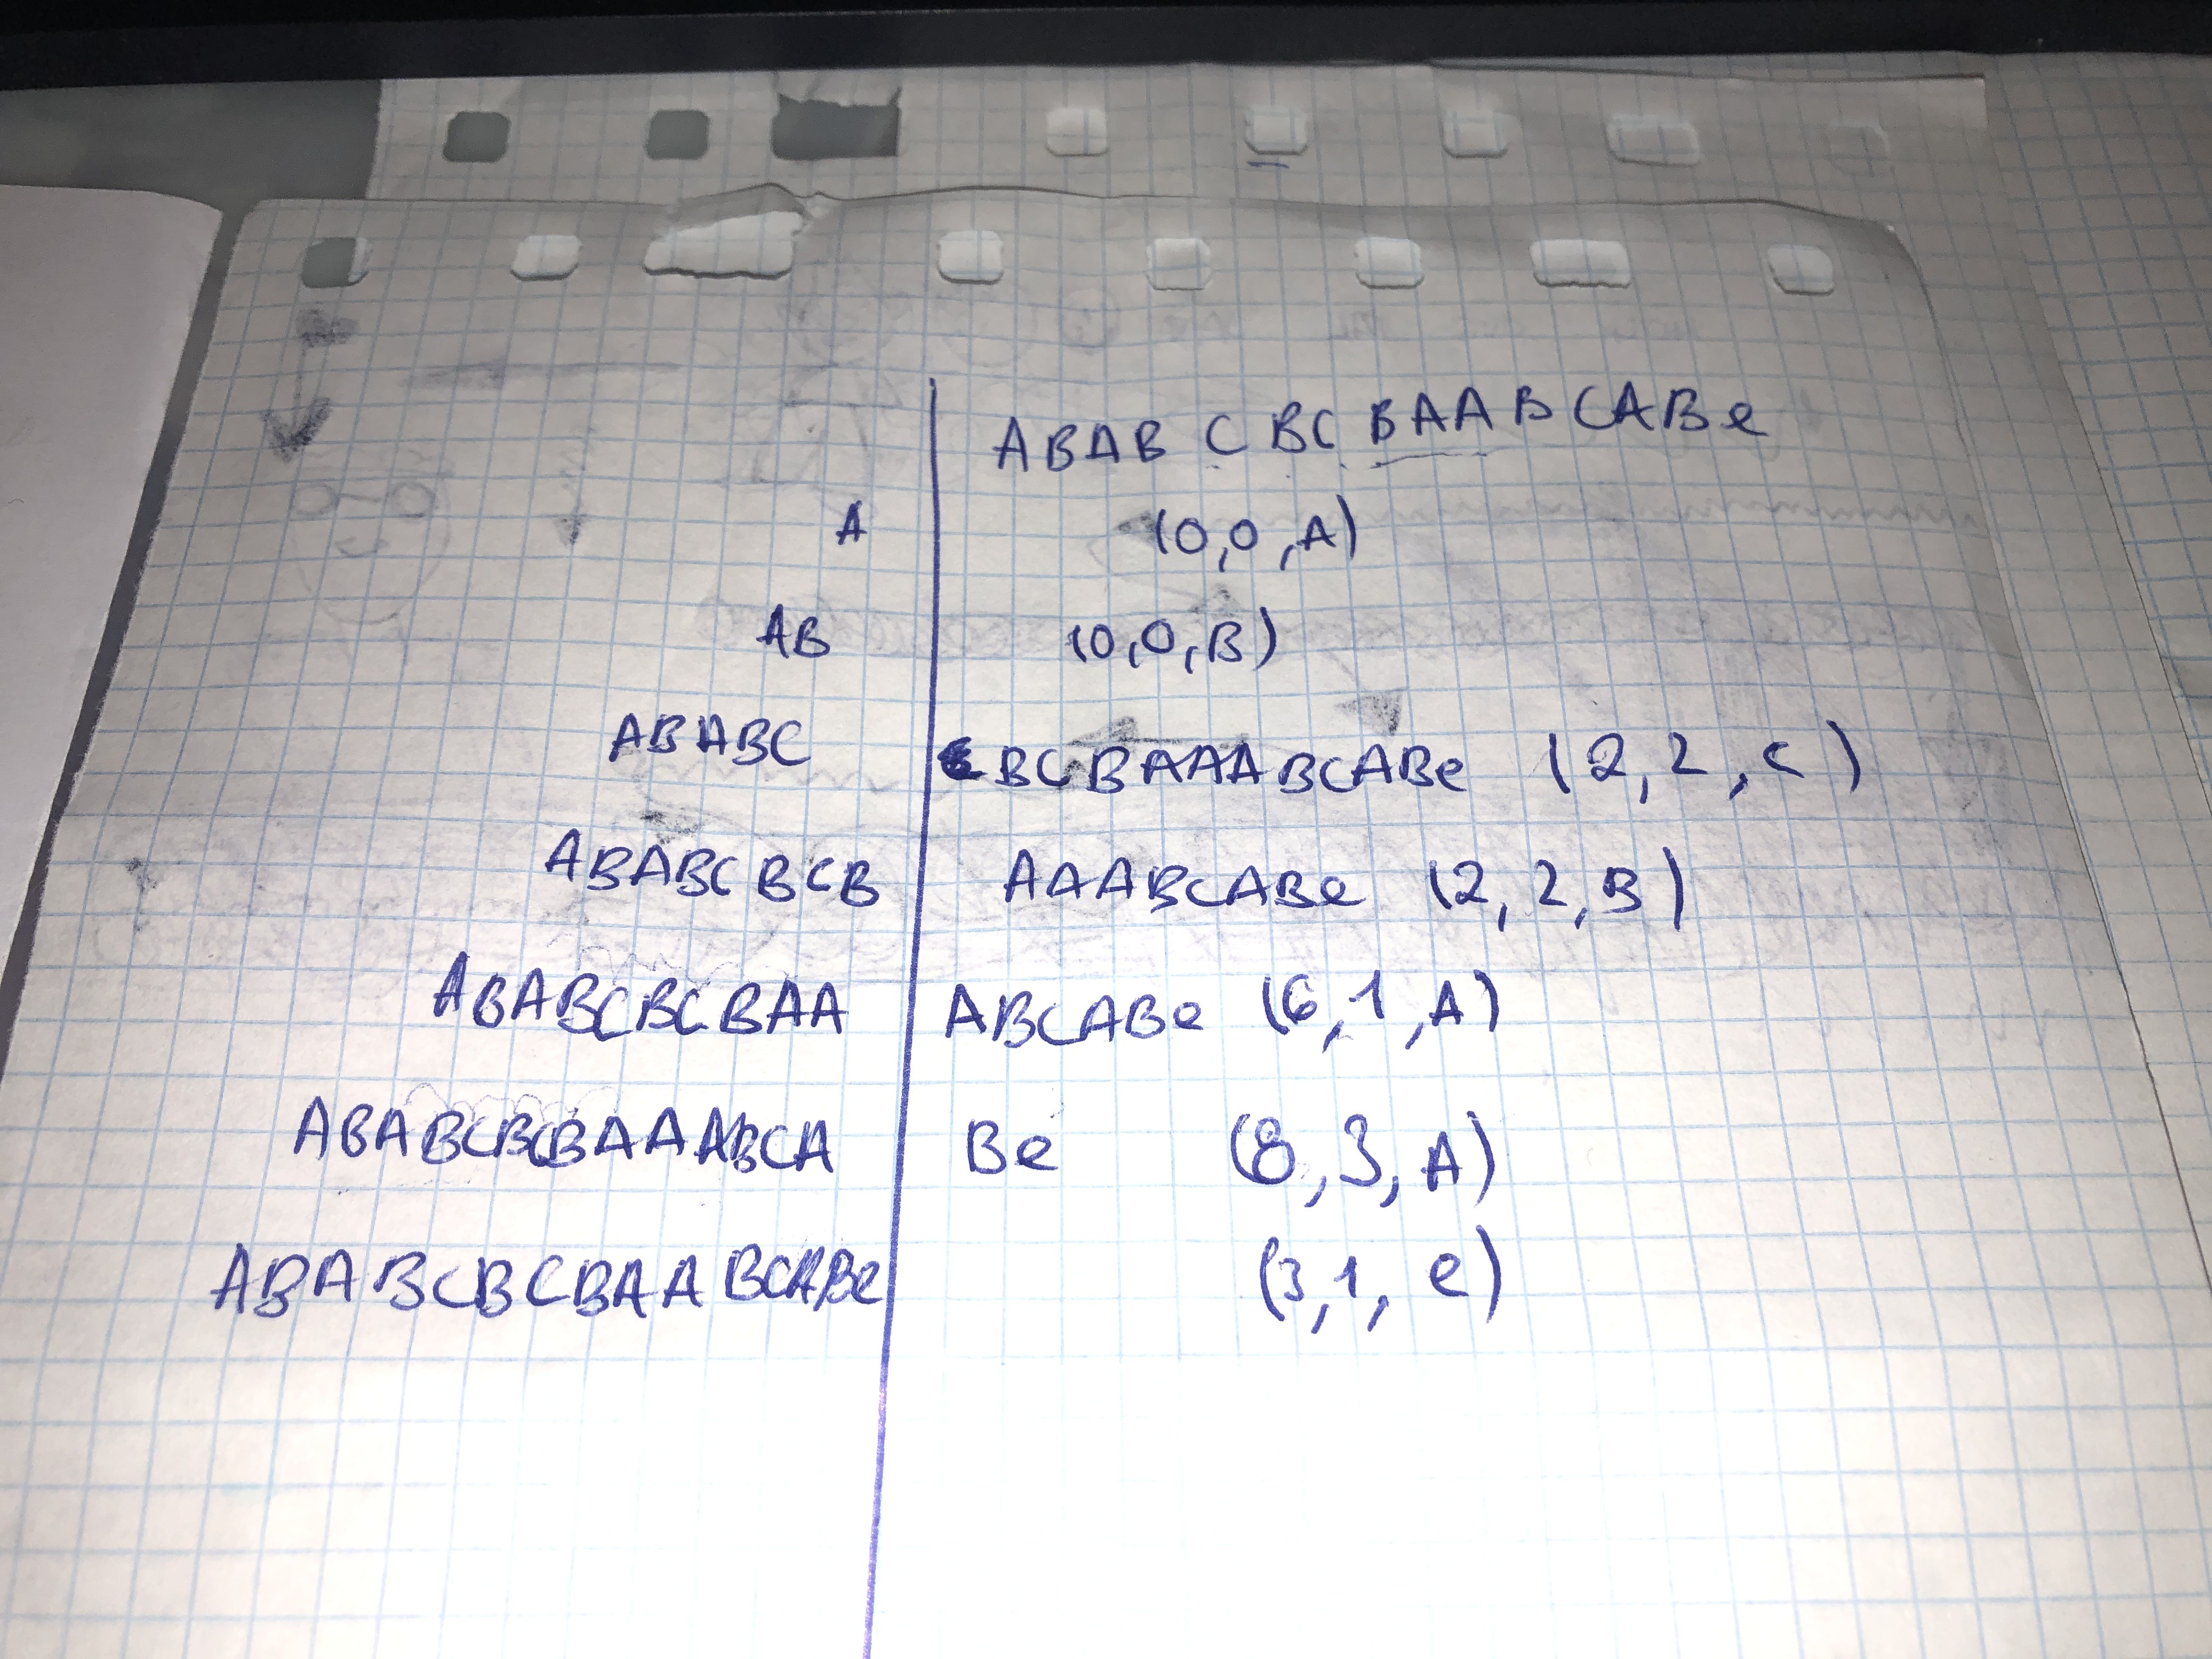 ABABCBCBAABCABe
A (0,0,A)
AB (0,0,B)
ABABC BCBAAABCABe (2,2,C)
ABABCBCB AAABCABe (2,2,B)
ABABCBCBAA ABCABe (6,1,A)
ABABCBCBAAABCA Be (8,3,A)
ABABCBCBAABCABe (3,1,e)